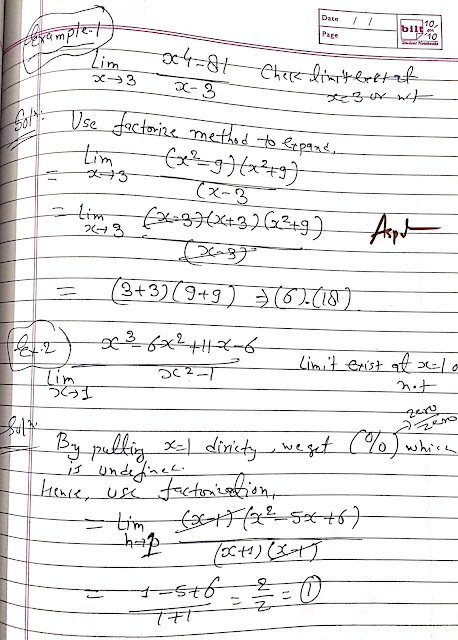 Date / /
Page
bilt 10 on 10
Student Notebooks
Example-1
Lim x→3 x4-81 / x-3 Check limit exist at x=3 or not
Soln:
Use factorize method to expand,
= Lim x→3 (x²-9)(x²+9) / (x-3
= Lim x→3 (x-3)(x+3)(x²+9) / (x-3)
= (3+3)(9+9) ⇒ (6).(18)
Ex.2 x³-6x²+11x-6 / x²-1
Lim x→1
Limit exist at x=1 o
not
zero/zero
Soln
By putting x=1 directy, we get (0/0) which
is undefined.
Hence, use factorization,
= Lim h→1 (x-1)(x²-5x+6) / (x+1)(x-1)
= 1-5+6 / 1+1 = 2/2 = 1